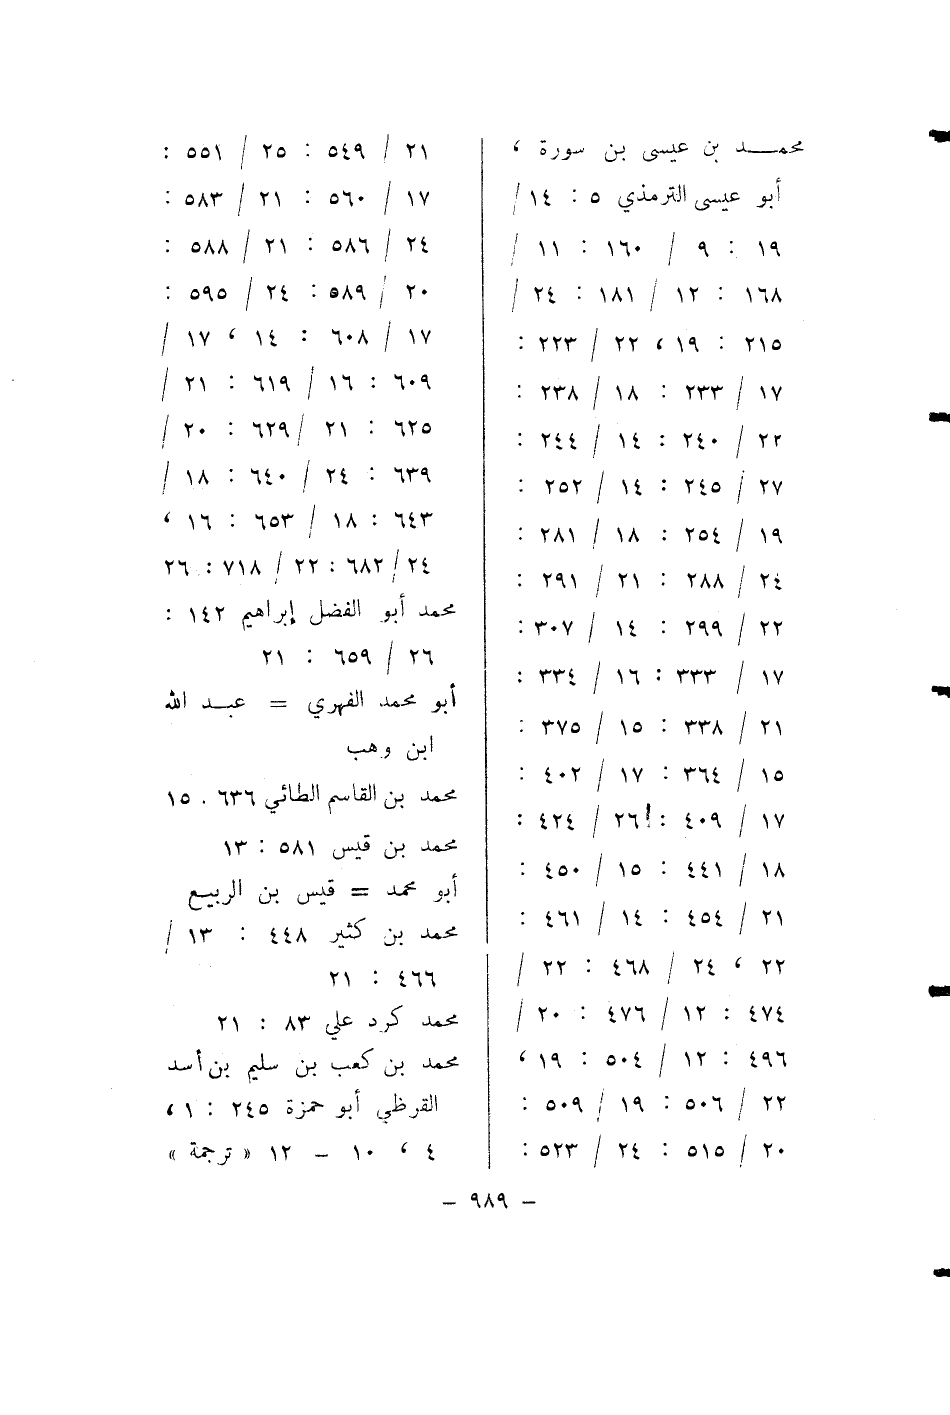 محمـــد بن عيسى بن سورة ،
أبو عيسى الترمذي ٥ : ١٤ /
١٩ : ٩ / ١٦٠ : ١١ /
١٦٨ : ١٢ / ١٨١ : ٢٤ /
٢١٥ : ١٩ ، ٢٢ / ٢٢٣ :
١٧ / ٢٣٣ : ١٨ / ٢٣٨ :
٢٢ / ٢٤٠ : ١٤ / ٢٤٤ :
٢٧ / ٢٤٥ : ١٤ / ٢٥٢ :
١٩ / ٢٥٤ : ١٨ / ٢٨١ :
٢٤ / ٢٨٨ : ٢١ / ٢٩١ :
٢٢ / ٢٩٩ : ١٤ / ٣٠٧ :
١٧ / ٣٣٣ : ١٦ / ٣٣٤ :
٢١ / ٣٣٨ : ١٥ / ٣٧٥ :
١٥ / ٣٦٤ : ١٧ / ٤٠٢ :
١٧ / ٤٠٩ : ٢٦ / ٤٢٤ :
١٨ / ٤٤١ : ١٥ / ٤٥٠ :
٢١ / ٤٥٤ : ١٤ / ٤٦١ :
٢٢ ، ٢٤ / ٤٦٨ : ٢٢ /
٤٧٤ : ١٢ / ٤٧٦ : ٢٠ /
٤٩٦ : ١٢ / ٥٠٤ : ١٩ ،
٢٢ / ٥٠٦ : ١٩ / ٥٠٩ :
٢٠ / ٥١٥ : ٢٤ / ٥٢٣ :
٢١ / ٥٤٩ : ٢٥ / ٥٥١ :
١٧ / ٥٦٠ : ٢١ / ٥٨٣ :
٢٤ / ٥٨٦ : ٢١ / ٥٨٨ :
٢٠ / ٥٨٩ : ٢٤ / ٥٩٥ :
١٧ / ٦٠٨ : ١٤ ، ١٧ /
٦٠٩ : ١٦ / ٦١٩ : ٢١ /
٦٢٥ : ٢١ / ٦٢٩ : ٢٠ /
٦٣٩ : ٢٤ / ٦٤٠ : ١٨ /
٦٤٣ : ١٨ / ٦٥٣ : ١٦ ،
٢٤ / ٦٨٢ : ٢٢ / ٧١٨ : ٢٦
محمد أبو الفضل إبراهيم ١٤٢ :
٢٦ / ٦٥٩ : ٢١
أبو محمد الفهري = عبـد الله
ابن وهب
محمد بن القاسم الطائي ٦٣٦ . ١٥
محمد بن قيس ٥٨١ : ١٣
أبو محمد = قيس بن الربيـع
محمد بن كثير ٤٤٨ : ١٣ /
٤٦٦ : ٢١
محمد كرد علي ٨٣ : ٢١
محمد بن كعب بن سليم بن أسد
القرظي أبو حمزة ٢٤٥ : ١ ،
٤ ، ١٠ – ١٢ « ترجمة »
– ٩٨٩ –